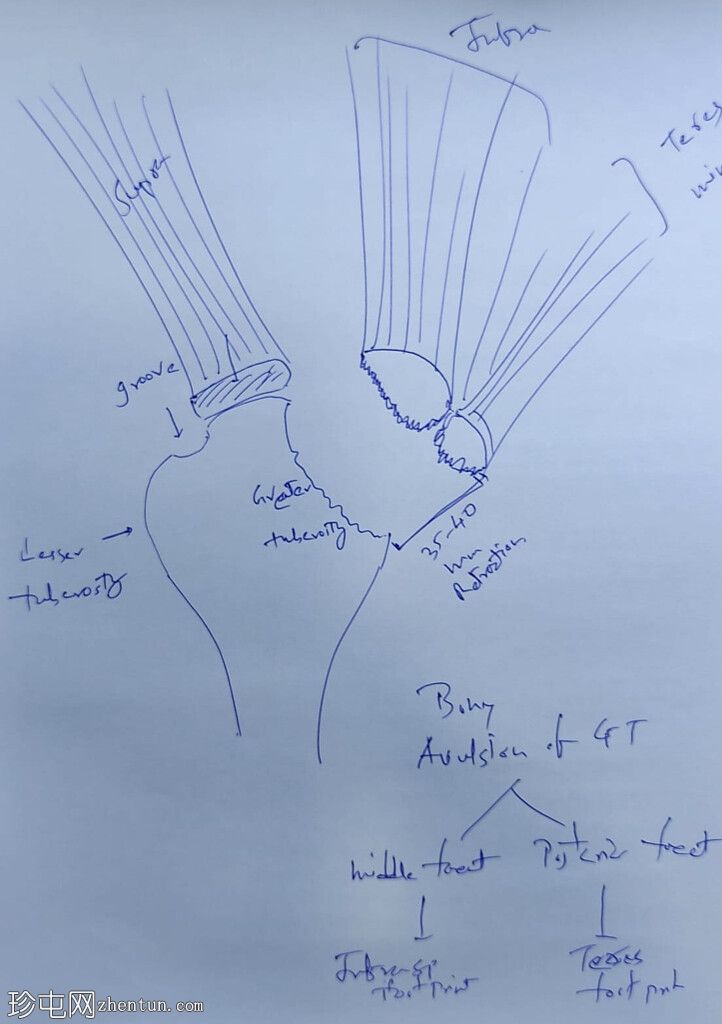 Infra
Teres
min
Supra
groove
Greater
tuberosity
Lesser
tuberosity
35-40
mm
Retraction
Bony
Avulsion of GT
Middle facet
Posterior facet
Infrasp
foot print
Teres
foot print
珍屯网zhentun.com